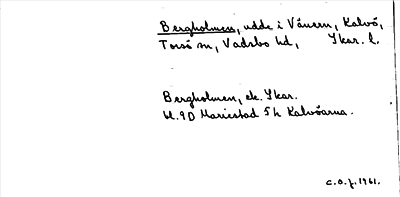 Bergholmen, udde i Vänern, Kalvö,
Torsö sn, Vadsbo hd, Skar. l.
Bergholmen, ek. Skar.
bl. 9D Mariestad 5h Kalvöarna.
C.O.f. 1961.